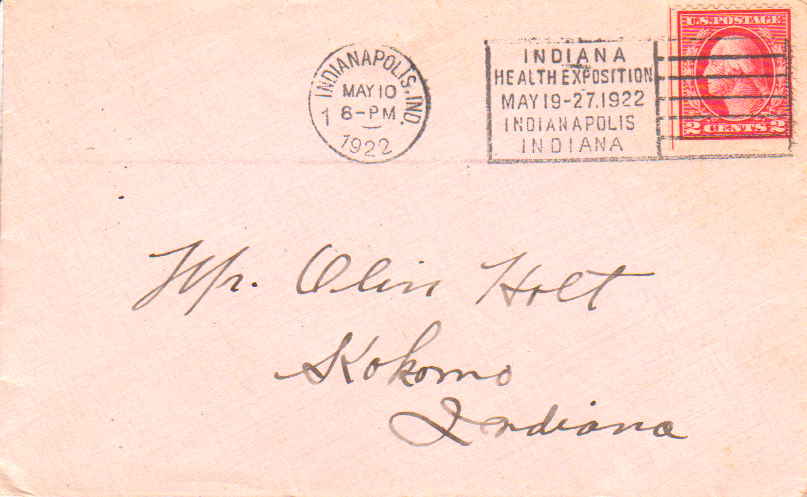 INDIANAPOLIS, IND.
MAY 10
6-PM
1
1922
INDIANA
HEALTH EXPOSITION
MAY 19-27.1922
INDIANAPOLIS
INDIANA
U.S. POSTAGE
2 CENTS 2
Mr. Olin Holt
Kokomo
Indiana